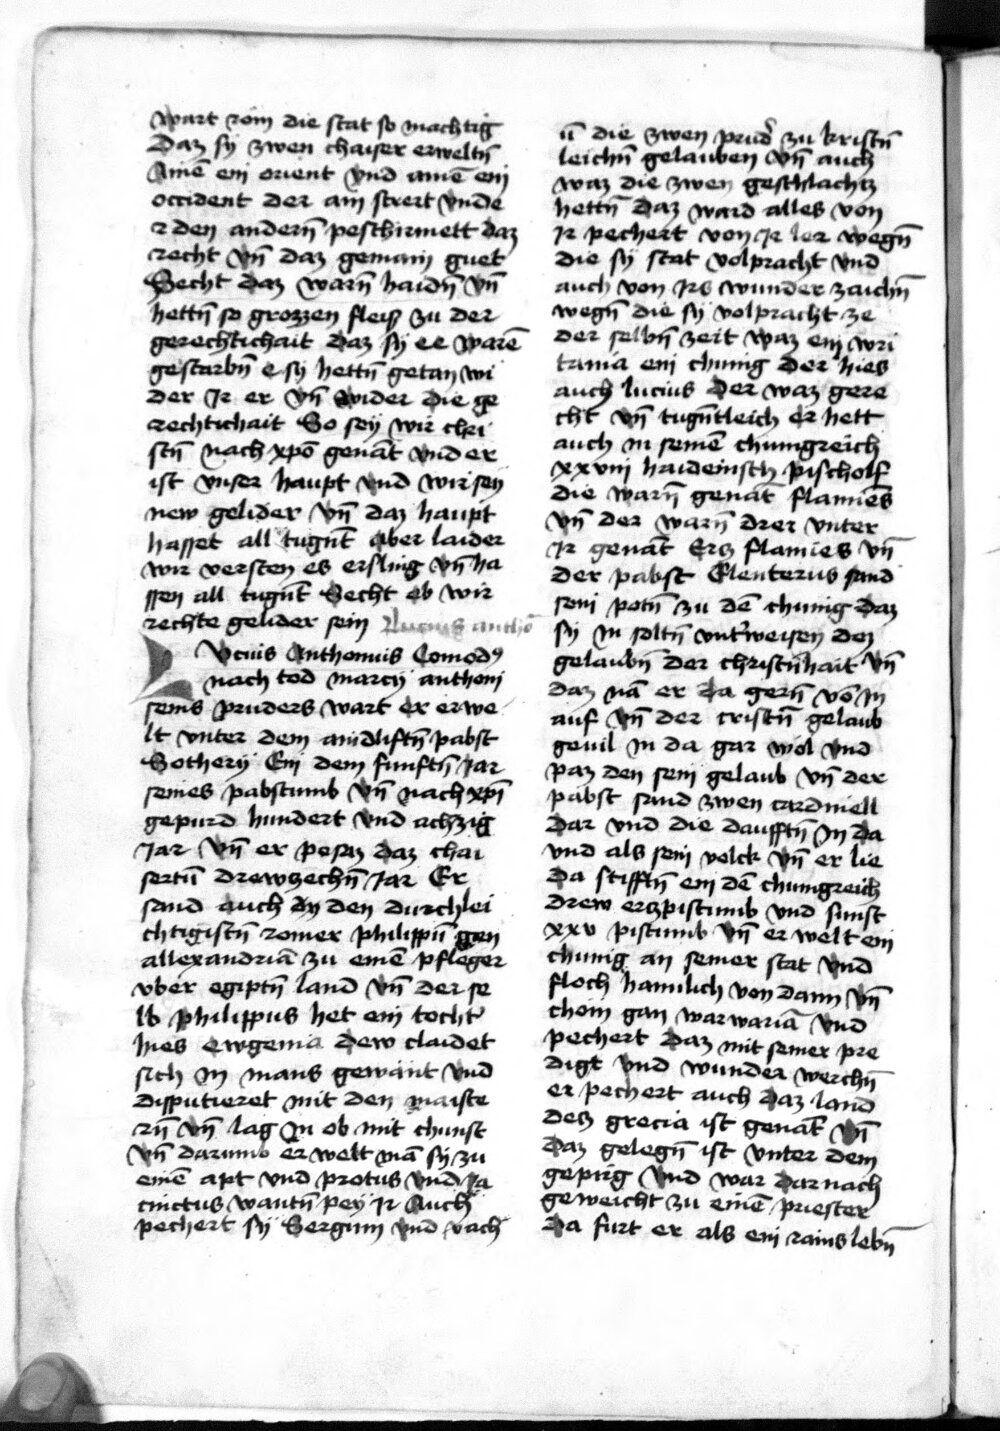 wart rom die stat so machtig
Daz sy zwen chaiser erweltn̄
Ainē ein orient vnd ainē ein
occident der ain strert vnde
r den andern̄ peschirmett daz
recht vn̄ daz gemain guet
Secht daz warn̄ haidn̄ vn̄
hettn̄ so grozzen fleis zu der
gerechtichait daz sy ee warē
gestarbn̄ e sy hettn̄ getan wi
der Ir er vn̄ wider die ge
rechtichait So sey wir chri
stn̄ nach xpō genāt vnd er
ist vnser haupt vnd wir seӱ
new gelider vn̄ daz haupt
hasset all tugnt̄ aber laider
wir versten es ersling vn̄ ha
ssen all tugnt̄ Secht ob wir
rechte gelider sein Lucius anthō
Lvcius Anthonius Comodꝰ
nach tod marcij anthonj
seins pruders wart er erwe
lt vnter dem aindliftn̄ pabst
Sotherij Ein dem funftn̄ Jar
seines pabstumb vn̄ nach xpī
gepurd hundert vnd achzig
Jar vn̄ er pesaz daz chai
sertū drewzechn̄ Jar Er
sand auch den durchlei
chtigistn̄ romer philippū gen
allexandriā zu einē pfleger
vber egiptn̄ land vn̄ der se
lb philippus het ein tochtr̄
hies ewgenia dew claidet
sich in mans gewant vnd
disputieret mit den maiste
rn̄ vn̄ lag In ob mit chunst
vn̄ darumb erwelt mā sy zu
einē apt vnd protus vnd Ja
cinctus wantn̄ pey Ir Auch
pechert sy Sergium vnd vach
ū die zwen prudr̄ zu kristn̄
leichn̄ gelauben vn̄ auch
waz die zwen geschlachtz
hettn̄ daz ward alles von
Ir pechert von Ir ler wegn̄
die sy stat volpracht vnd
auch von Irs wunder zaichn̄
wegn̄ die sy volpracht ze
der selbn̄ zeit waz ein wri
tania ein chunig der hies
auch lucius der waz gere
cht vn̄ tugntleich er hett
auch in seinē chunigreich
xxviij haideinsch pischolf
die warn̄ genāt flamiēs
vn̄ der warn̄ drei vnter
Ir genāt Erz flamies vn̄
der pabst Elenterus sand
sein potn̄ zu dē chunig daz
sy In soltn̄ vntr̄weisen den
gelaubn̄ der christn̄hait vn̄
daz nā er da gern̄ vō In
auf vn̄ der cristn̄ gelaub
geuil In da gar wol vnd
paz den sein gelaub vn̄ der
pabst sand zwen cardiniell
dar vnd die daufftn̄ In da
vnd als sein volck vn̄ er lie
da stifftn̄ ein dē chunigreich
drew erzpistumb vnd sunst
xxv pistumb vn̄ er welt ein
chunig an seiner stat vnd
floch haimlich von dann vn̄
chom gan warwariā vnd
pechert daz mit seiner pre
digt vnd wunder werchn̄
er pechert auch daz land
dez grecia ist genāt vn̄
daz gelegn̄ ist vnter dem
gepirg vnd war dar nach
geweicht zu einē priester
da furt er als ein rains lebn̄